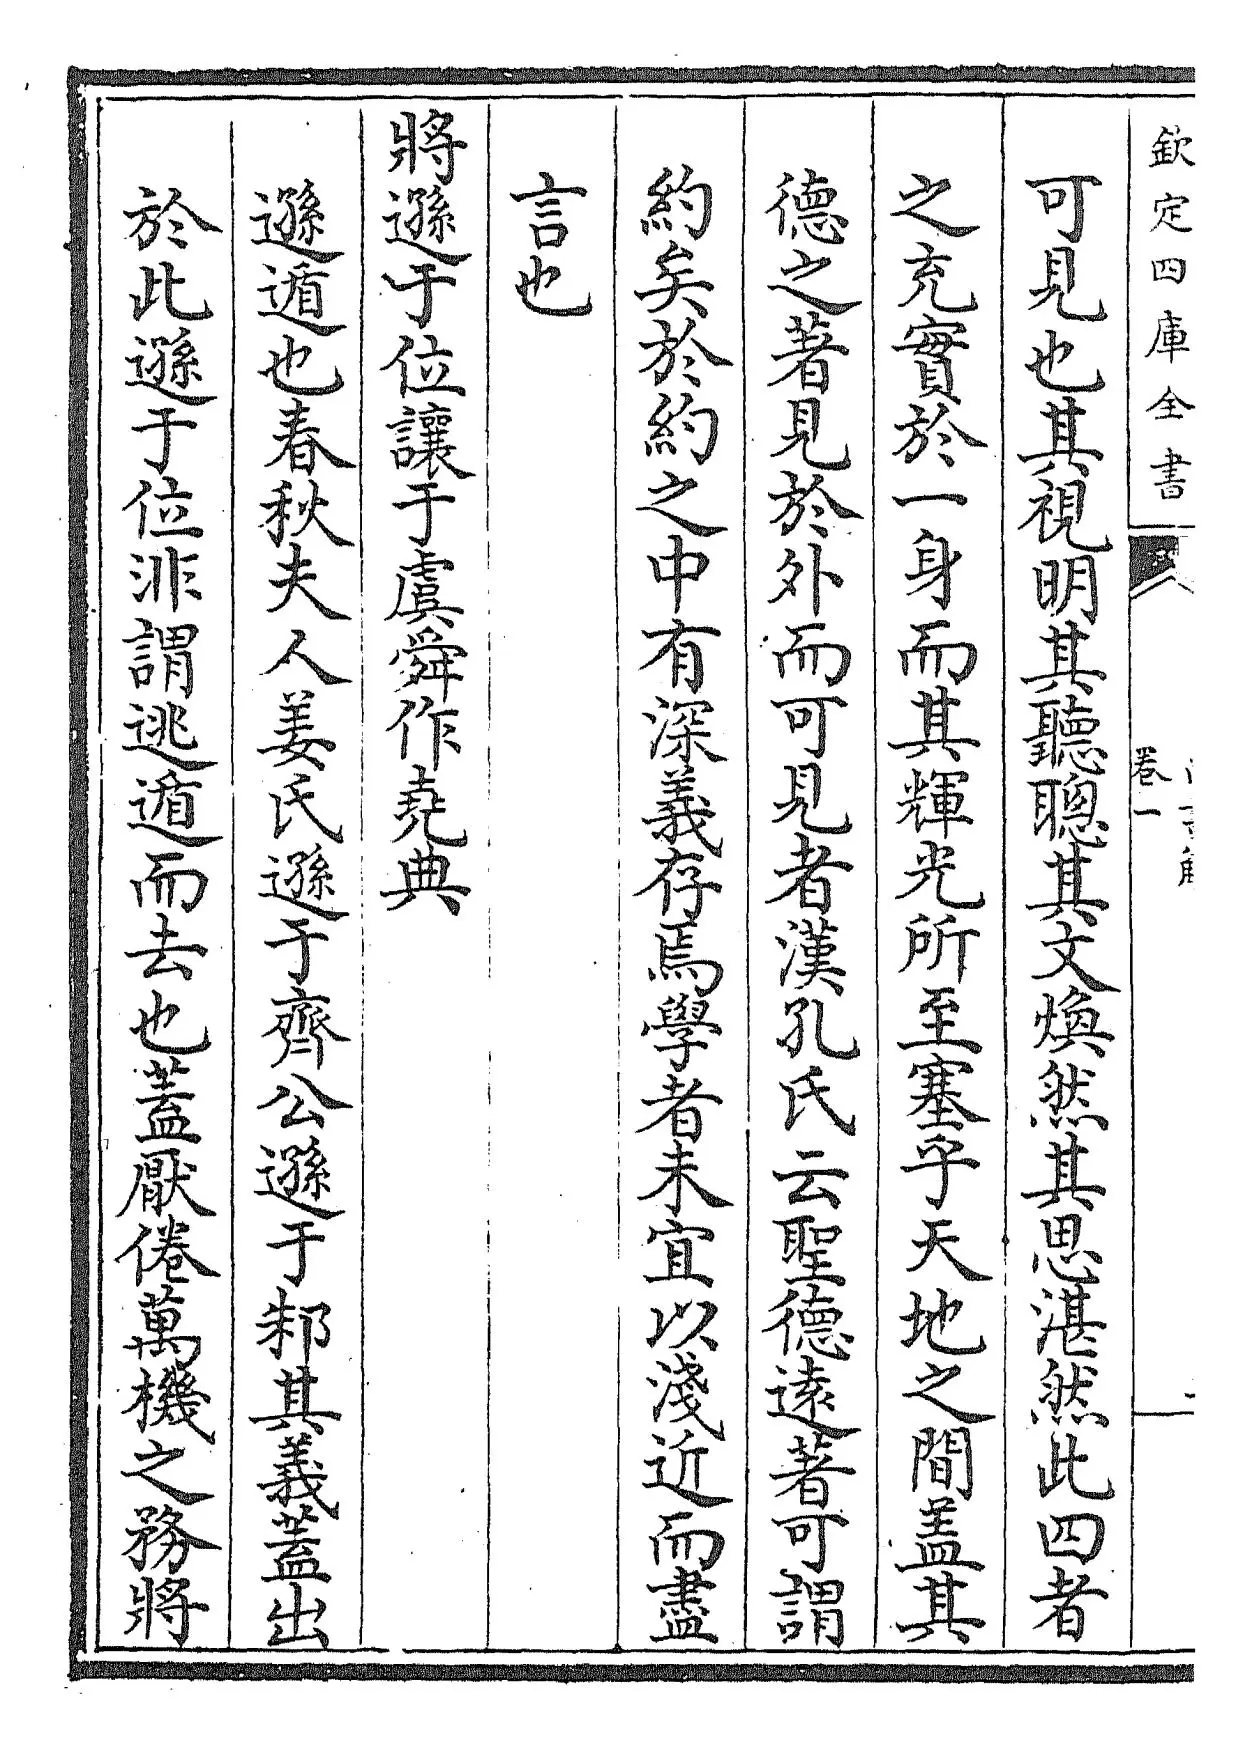 欽定四庫全書
卷一
可見也其視明其聽聰其文煥然其思湛然此四者
之充實於一身而其輝光所至塞乎天地之間蓋其
德之著見於外而可見者漢孔氏云聖德遠著可謂
約矣於約之中有深義存焉學者未宜以淺近而盡
言也
將遜于位讓于虞舜作堯典
遜遁也春秋夫人姜氏遜于齊公遜于邾其義蓋出
於此遜于位非謂逃遁而去也蓋厭倦萬機之務將